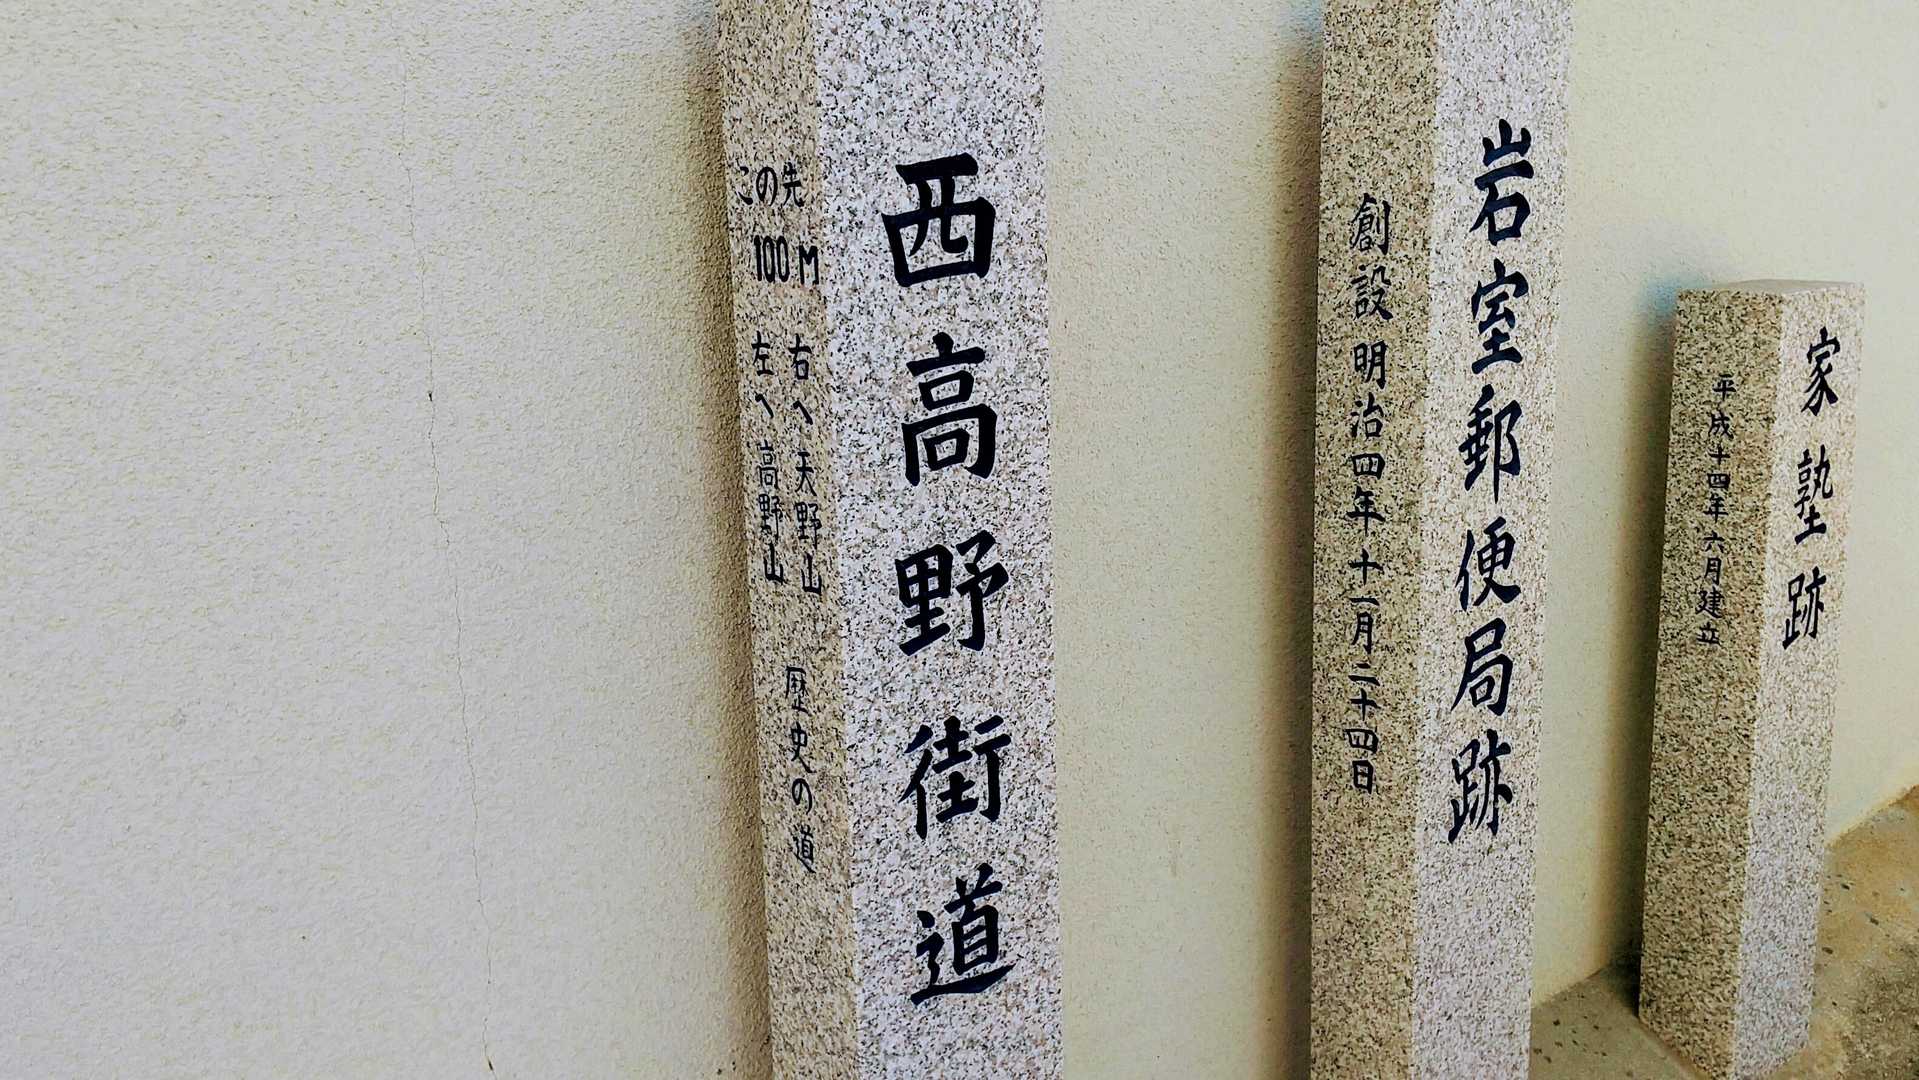 西高野街道
この先
100M
右へ天野山
左へ高野山
歴史の道
岩室郵便局跡
創設明治四年十一月二十四日
家塾跡
平成十四年六月建立